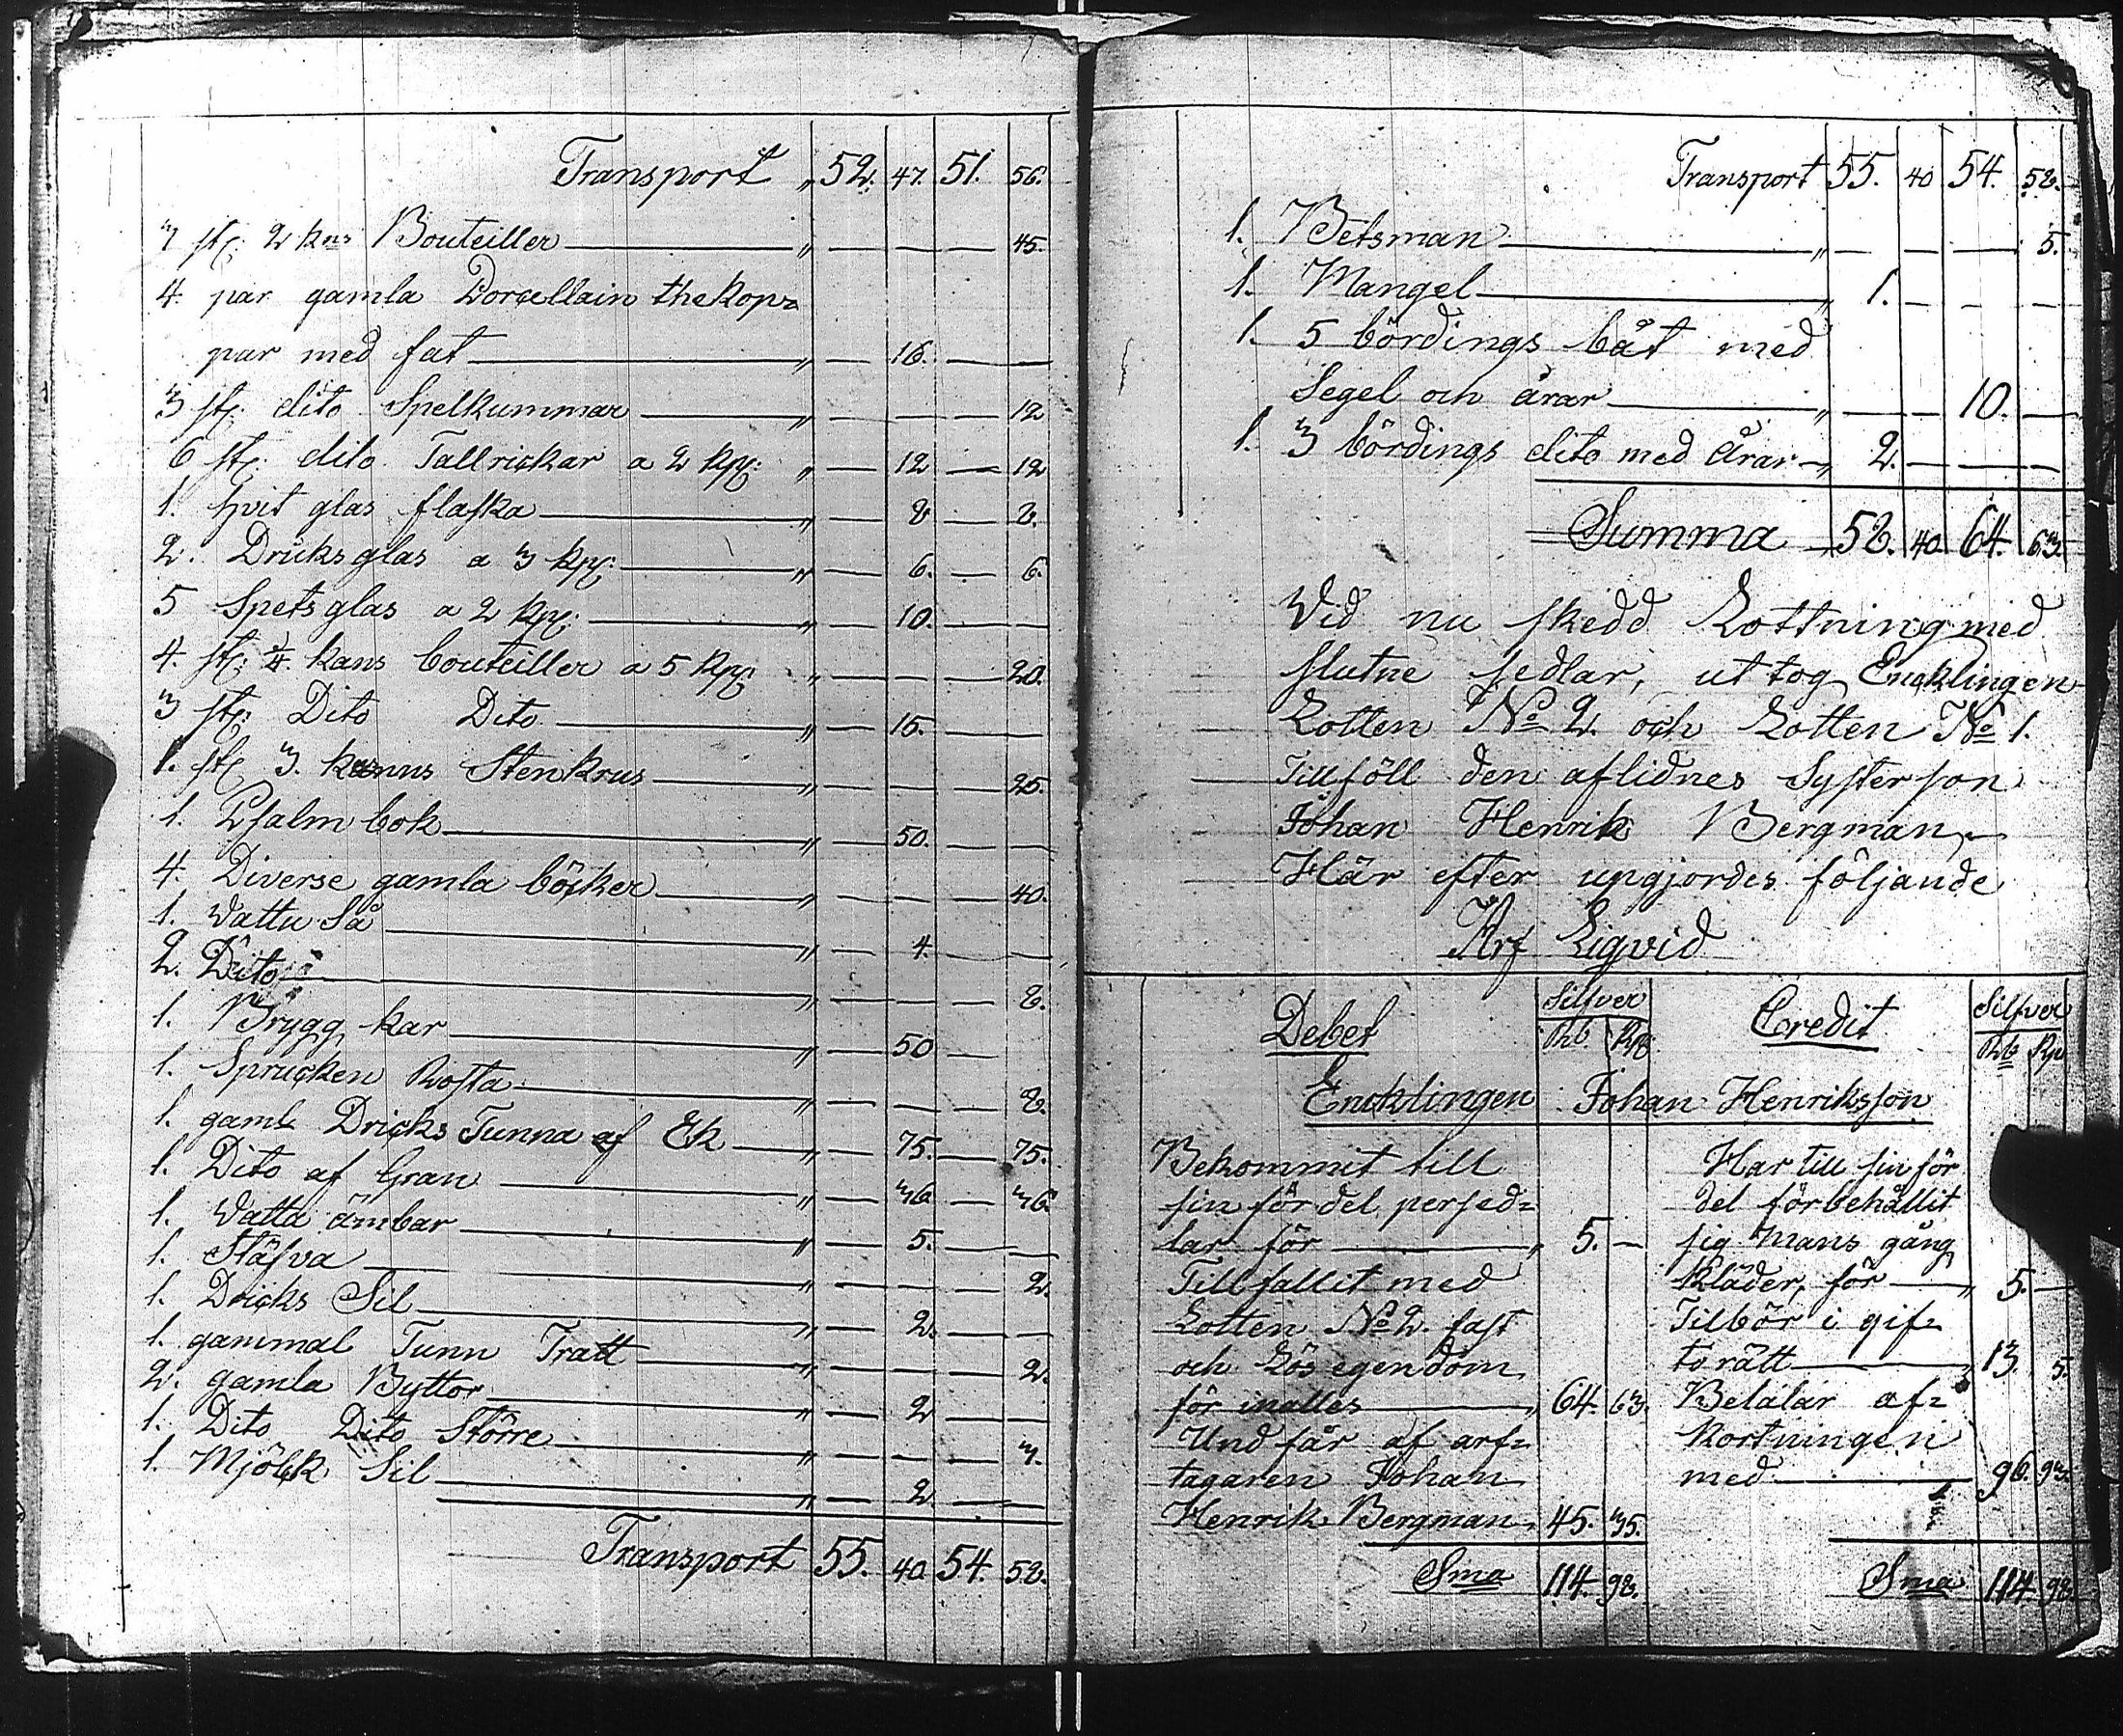 Transport " 52. 47. 51. 56.
3 st: 2 kns Bouteiller " — — — 45.
4. par gamla Porcellain thekop=
par med fat " — 16. — —
3 st: dito Spelkummar " — — — 12
6 st: dito Tallrickar a 2 kp: " — 12 — 12
1. hvit glas flaska " — 8 — 8.
2. Dricks glas a 3 kp: " — 6. — 6.
5 Spets glas a 2 kp: " — 10. — —
4. st: 1/4 kans bouteiller a 5 kp: " — — — 20.
3 st: Dito Dito " — 15. — —
1. st: 3. kanns Stenkrus " — — — 25.
1. Psalm bok " — 50. — —
4. Diverse gamla böcker " — — — 40.
1. Vattu Så " — 4. — —
2. Dito " — — — 8.
1. Brygg kar " — 50 —
1. Sprucken Rosta " — — — 8.
1. gaml Dricks Tunna af Ek " — 75. — 75.
1. Dito af Gran " — 36 — 36
1. Vattu ämbar " — 5. — —
1. Stäfva " — — — 2.
1. Dricks Sil " — 2. — —
1. gammal Tunn Tratt " — — — 2.
2. gamla Byttor " — 2 — —
1. Dito Dito Större " — — — 3.
1. Mjölk Sil " — 2 — —
Transport 55. 40 54. 58.
Transport 55. 40 54. 58.
1. Betsman " — — — 5.
1. Mangel " 1. — — —
1. 5 bördings båt med
Segel och årar " — — 10. —
1. 3 bördings dito med Årar " 2. — — —
Summa 58. 40. 64. 63.
Vid nu skedd Lottning med
slutne sedlar, uttog Encklingen
Lotten No 2. och Lotten No 1.
Tillföll den aflidnes Systerson
Johan Henrik Bergman
Här efter upgjordes följande
Arf Liqvid
Debet Silfver Rb. Kp. Credit Silfver Rb Kp
Encklingen Johan Henriksson
Bekommit till
sin fördel persed=
lar för " 5. —
Tillfallit med
Lotten No 2. fast
och Lös egendom
för inalles " 64. 63.
Undfår af arf=
tagaren Johan
Henrik Bergman 45. 35.
Sma 114. 98.
Har till sin för
del förbehållit
sig Mans gång
kläder, för " 5. —
Tilbör i gif=
to rätt " 13. 5.
Betalar af=
kortningen
med 96. 93.
Sma 114. 98.